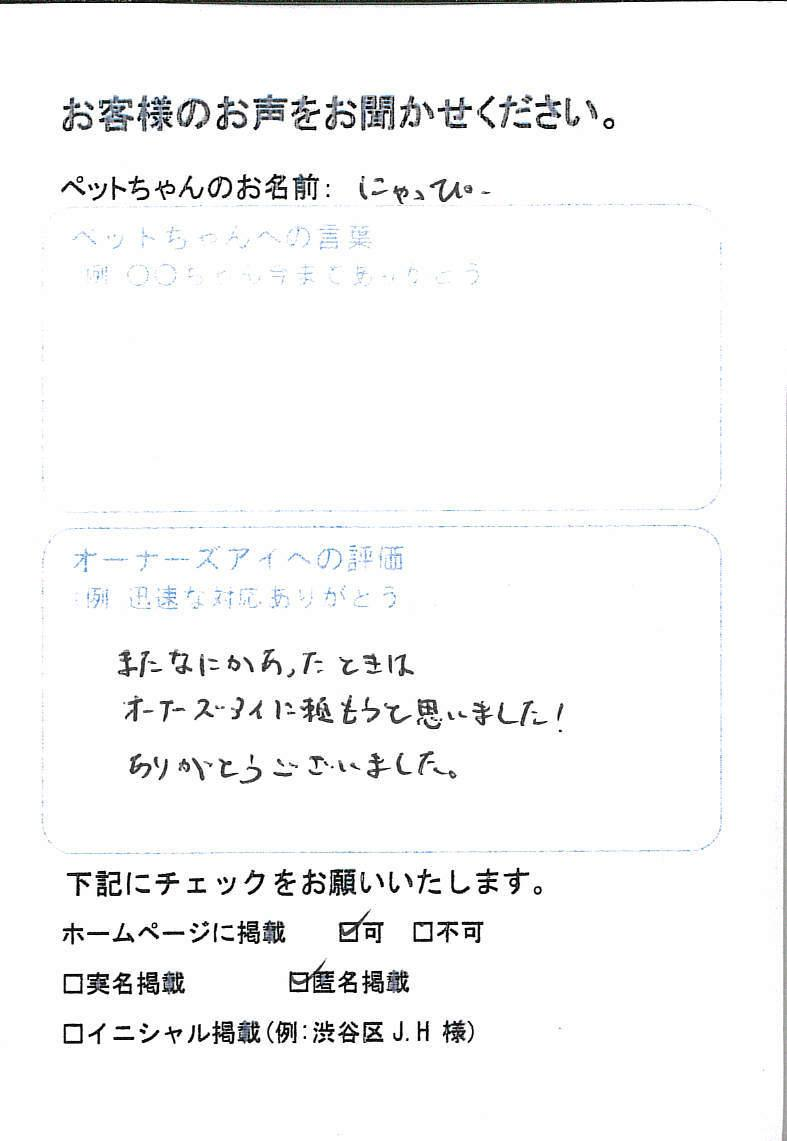 お客様のお声をお聞かせください。
ペットちゃんのお名前: にゃっぴー
ペットちゃんへの言葉
例 〇〇ちゃん今までありがとう
オーナーズアイへの評価
例 迅速な対応ありがとう
またなにかあったときは
オーナーズアイに頼もうと思いました!
ありがとうございました。
下記にチェックをお願いいたします。
ホームページに掲載 ☑可 □不可
□実名掲載 ☑匿名掲載
□イニシャル掲載(例:渋谷区 J.H 様)